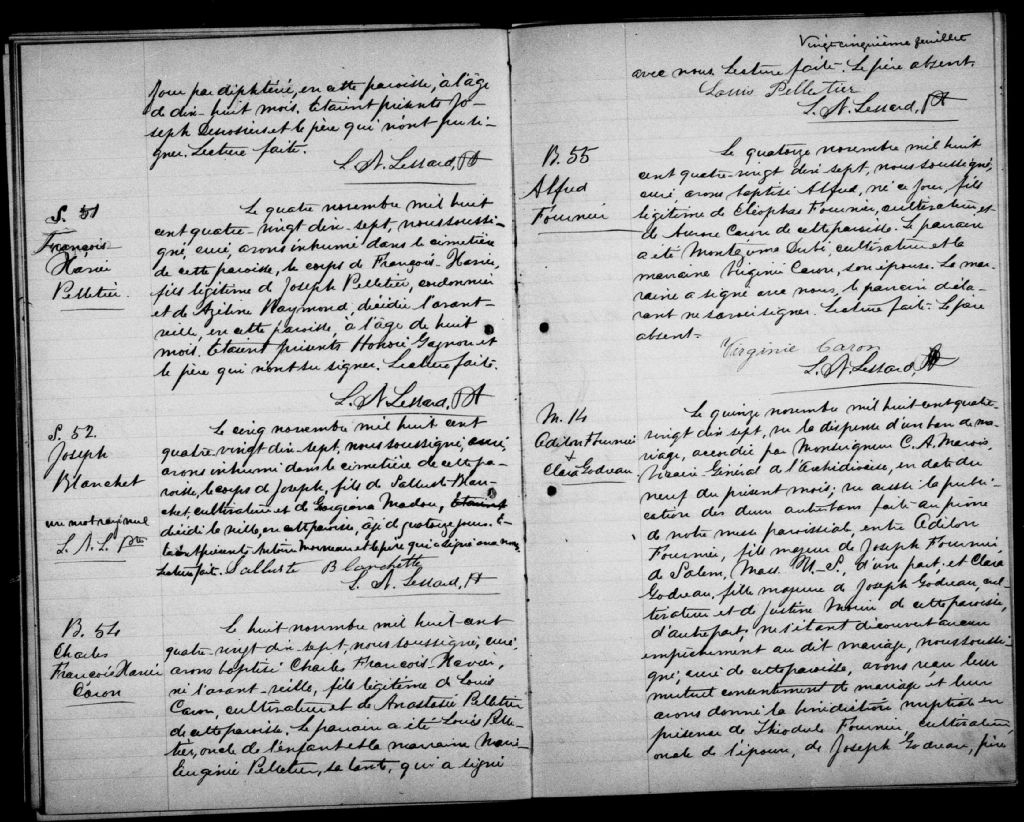 jour par diphtérie, en cette paroisse, à l'âge
de dix-huit mois. Etaient présents Jo-
seph Desrosiers et le père qui n'ont pu si-
gner. Lecture faite.
L. N. Lessard, Ptr
S. 51
François
Xavier
Pelletier.
Le quatre novembre mil huit
cent quatre-vingt dix-sept, nous soussi-
gné, curé, avons inhumé dans le cimetière
de cette paroisse, le corps de François-Xavier,
fils légitime de Joseph Pelletier, cordonnier
et de Azéline Raymond, décédé l'avant-
veille, en cette paroisse, à l'âge de huit
mois. Etaient présents Honoré Gagnon et
le père qui n'ont su signer. Lecture faite.
L. N. Lessard, Ptr
S. 52.
Joseph
Blanchet
un mot rayé nul
L. N. L. Ptre
Le cinq novembre mil huit cent
quatre-vingt dix-sept, nous soussigné, curé,
avons inhumé dans le cimetière de cette pa-
roisse, le corps de Joseph, fils de Salluste Blan-
chet, cultivateur et de Georgiana Nadeau, Etaient
décédé la veille, en cette paroisse, âgé de quatorze jours. E-
taient présents Antoine Morneau et le père qui a signé avec nous.
Lecture faite. Salluste Blanchette
L. N. Lessard, Ptr
B. 54
Charles
François Xavier
Caron
Le huit novembre mil huit cent
quatre-vingt dix-sept, nous soussigné, curé,
avons baptisé Charles François Xavier,
né l'avant-veille, fils légitime de Louis
Caron, cultivateur et de Anastasie Pelletier
de cette paroisse. Le parrain a été Louis Pelle-
tier, oncle de l'enfant et la marraine Marie
Eugénie Pelletier, sa tante, qui a signé
Vingt cinquième feuillet
avec nous. Lecture faite. Le père absent.
Louis Pelletier
L. N. Lessard, Ptr
B. 55
Alfred
Fournier
Le quatorze novembre mil huit
cent quatre-vingt dix-sept, nous soussigné,
curé, avons baptisé Alfred, né ce jour, fils
légitime de Cléophas Fournier, cultivateur, et
de Aurore Caron de cette paroisse. Le parrain
a été Montézuma Dubé, cultivateur et la
marraine Virginie Caron, son épouse. La mar-
raine a signé avec nous, le parrain décla-
rant ne savoir signer. Lecture faite. Le père
absent.
Virginie Caron
L. N. Lessard, Ptr
M. 14
Odilon Fournier
+
Clara Godreau
Le quinze novembre mil huit cent quatre-
vingt dix sept, vu la dispense d'un ban de ma-
riage, accordée par Monseigneur C. A. Marois,
Vicaire Général de l'Archidiocèse, en date du
neuf du présent mois; vu aussi la publi-
cation des deux autres bans faite au prône
de notre messe paroissiale, entre Odilon
Fournier, fils majeur de Joseph Fournier,
de Salem, Mass. U.-S., d'une part, et Clara
Godreau, fille majeure de Joseph Godreau, cul-
tivateur et de Justine Morin de cette paroisse,
d'autre part; ne s'étant découvert aucun
empêchement au dit mariage, nous soussi-
gné, curé de cette paroisse, avons reçu leur
mutuel consentement de mariage, et leur
avons donné la bénédiction nuptiale en
présence de Théodule Fournier, cultivateur,
oncle de l'époux, de Joseph Godreau, père